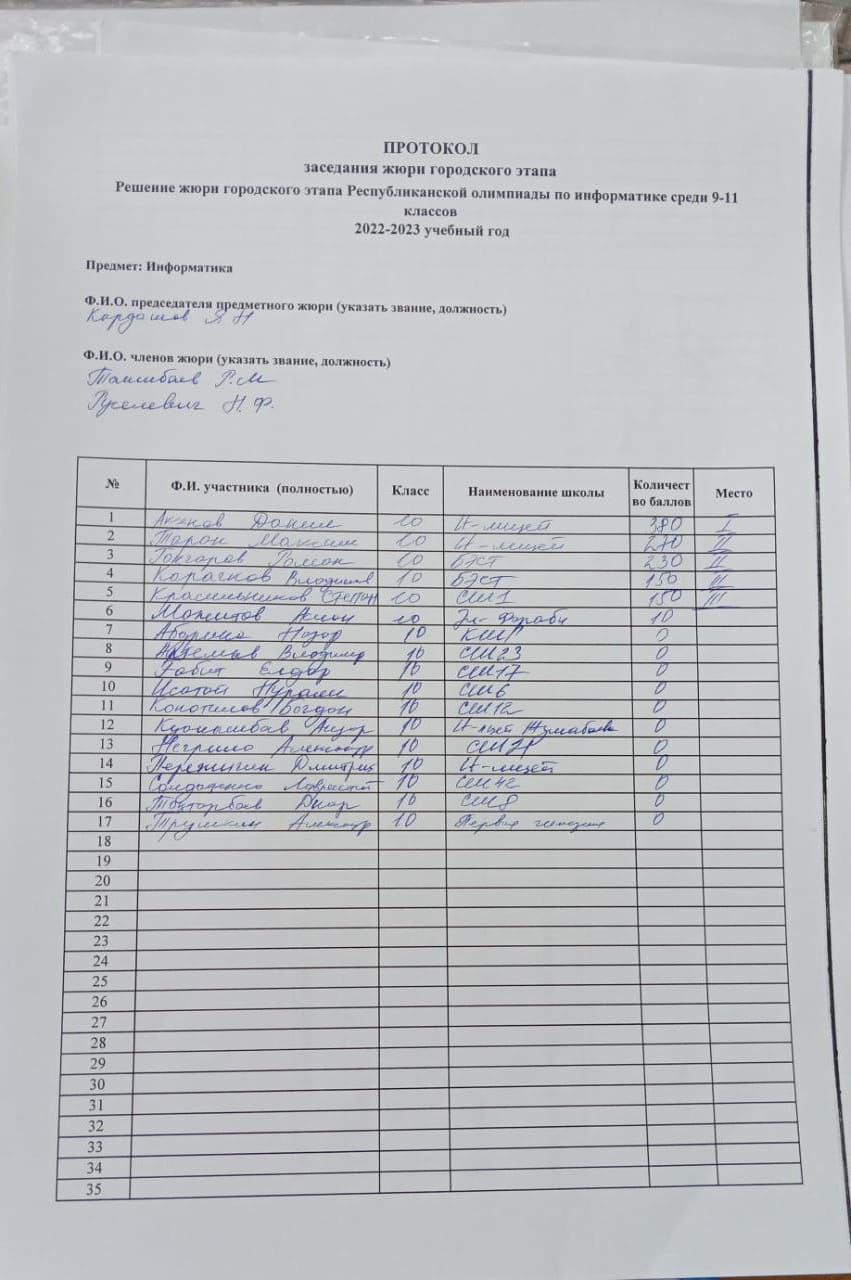 ПРОТОКОЛ
заседания жюри городского этапа
Решение жюри городского этапа Республиканской олимпиады по информатике среди 9-11
классов
2022-2023 учебный год
Предмет: Информатика
Ф.И.О. председателя предметного жюри (указать звание, должность)
Кардашов Я Н
Ф.И.О. членов жюри (указать звание, должность)
Р.М
Н.Ф.
№ Ф.И. участника (полностью) Класс Наименование школы Количест во баллов Место
1 Аксенов Данил 10 И-лицей 380 I
2 Таран Максим 10 И-лицей 270 II
3 Гончаров Роман 10 БЭСТ 230 II
4 Карачков Владислав 10 БЭСТ 150 III
5 Красильников Степан 10 СШ1 150 III
6 Мажитов 10 Эл-Фараби 10
7 10 0
8 Артемьев Владимир 10 СШ23 0
9 Габит Елдар 10 СШ17 0
10 Исатай Нурали 10 СШ6 0
11 Конотилов Богдан 10 СШ12 0
12 10 И-лицей Жумабаева 0
13 Александр 10 0
14 Пережигин Дмитрий 10 И-лицей 0
15 10 СШ42 0
16 Диар 10 СШ8 0
17 Трушкин Александр 10 Первая гимназия 0
18
19
20
21
22
23
24
25
26
27
28
29
30
31
32
33
34
35